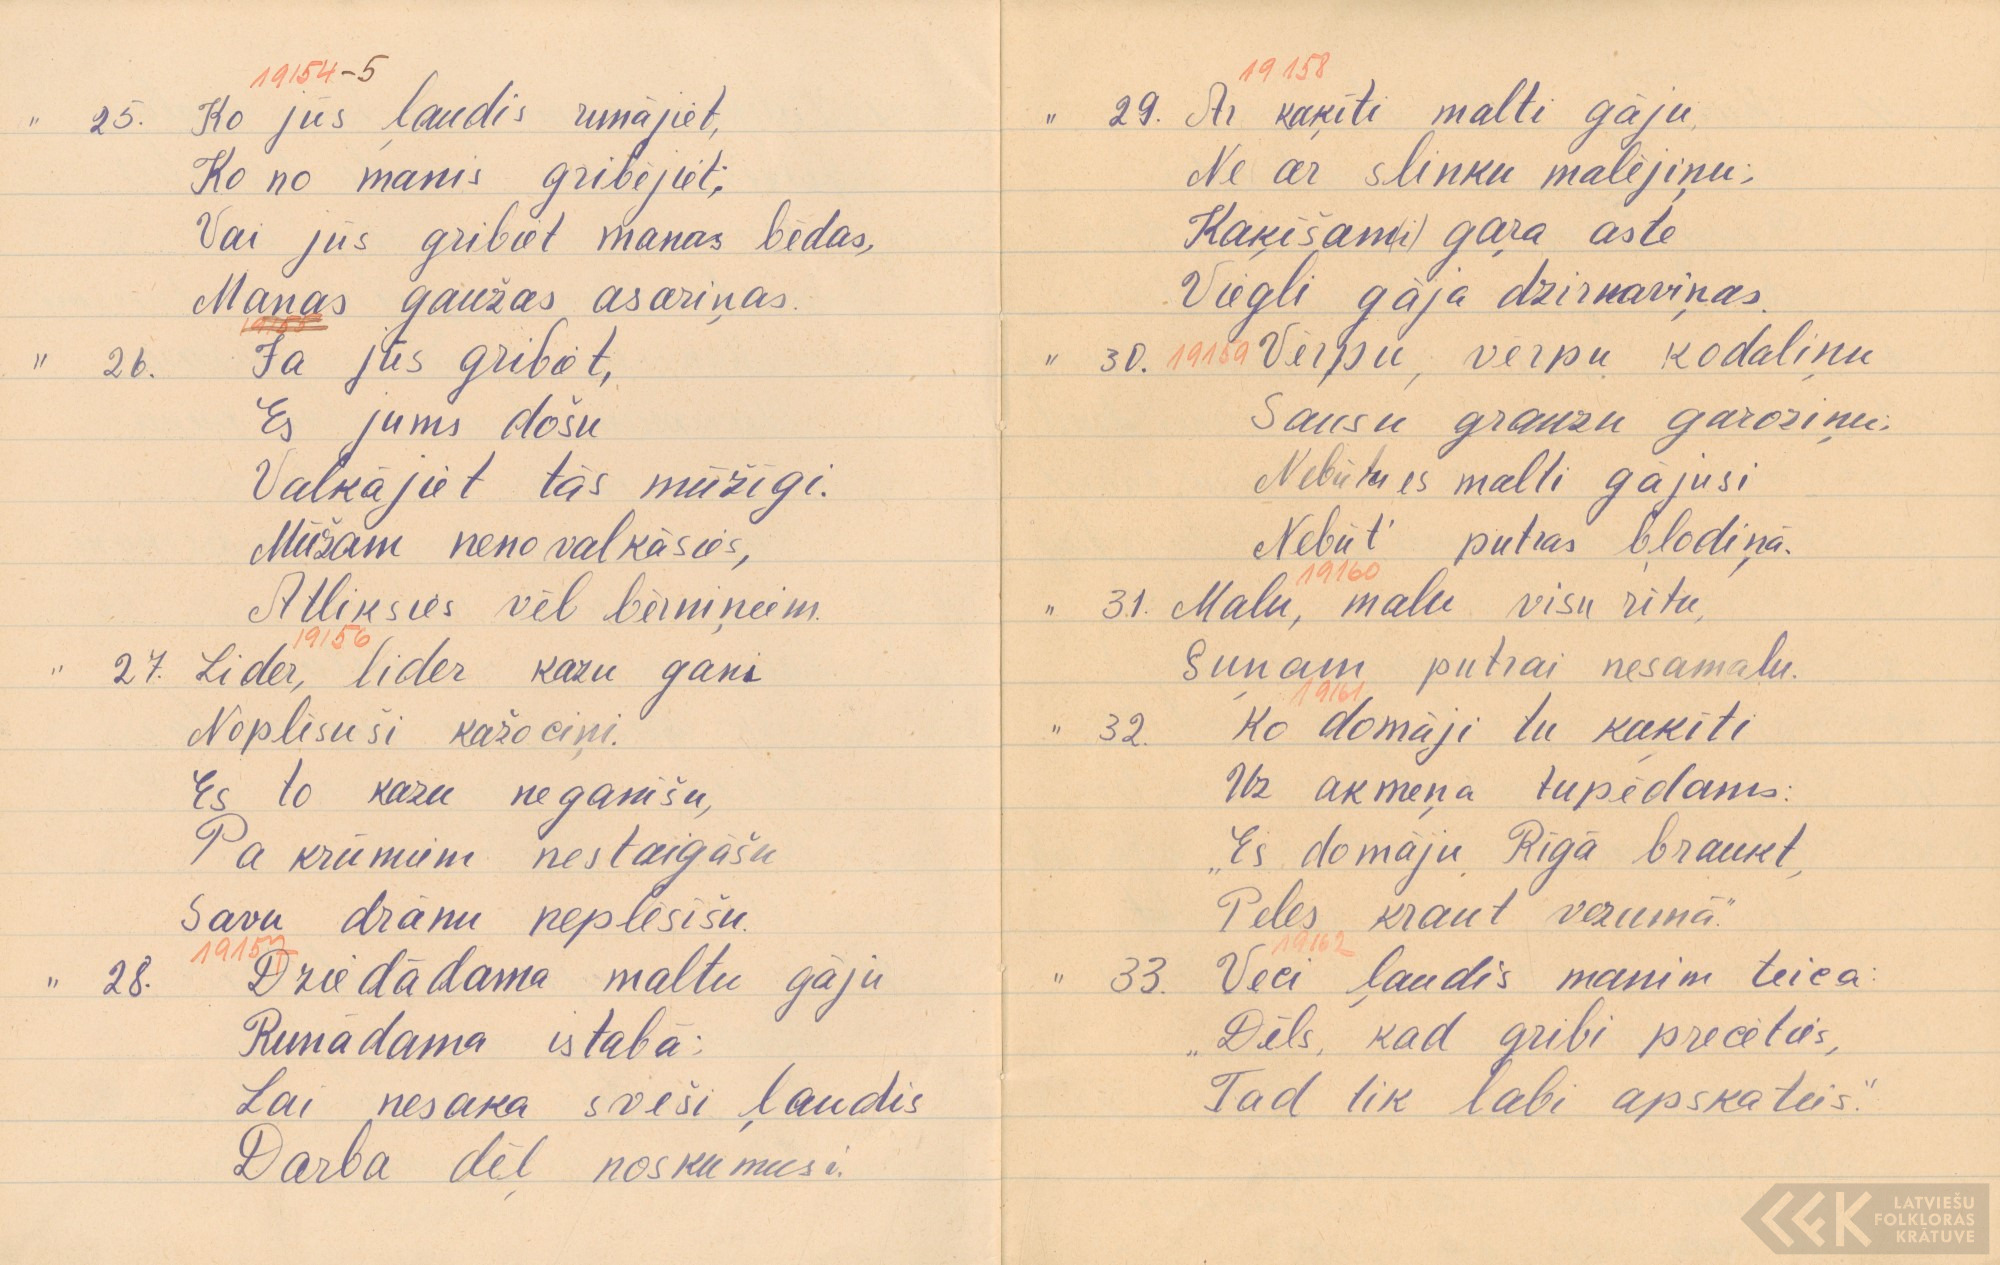 19154-5
" 25. Ko jūs ļaudis runājiet,
Ko no manis gribējiet;
Vai jūs gribiet manas bēdas,
Manas gaužas asariņas.
19155
" 26. Ja jūs gribiet,
Es jums došu
Valkājiet tās mūžīgi.
Mūžam nenovalkāsies,
Atliksies vēl bērniņiem.
19156
" 27. Lider, lider kazu gani
Noplēsuši kažociņi.
Es to kazu neganīšu,
Pa krūmiem nestaigāšu
Savu drānu neplēsīšu.
19157
" 28. Dziedādama maltu gāju
Runādama istabā:
Lai nesaka sveši ļaudis
Darba dēļ noskumusi.
19158
" 29. Ar kaķīti malti gāju,
Ne ar slinku malējiņu;
Kaķīšam(i) gaŗa aste
Viegli gāja dzirnaviņas.
" 30. 19159 Vērpu, vērpu kodaliņu
Sausu grauzu garoziņu;
Nebūtu es malti gājusi
Nebūt' putras bļodiņā.
19160
" 31. Malu, malu visu rītu,
Suņam putrai nesamalu.
19161
" 32. Ko domāji tu kaķīti
Uz akmeņa tupēdams:
„Es domāju Rīgā braukt,
Peles kraut vezumā."
19162
" 33. Veci ļaudis manim teica:
„Dēls, kad gribi precēties,
Tad tik labi apskaties."
LATVIEŠU
FOLKLORAS
KRĀTUVE